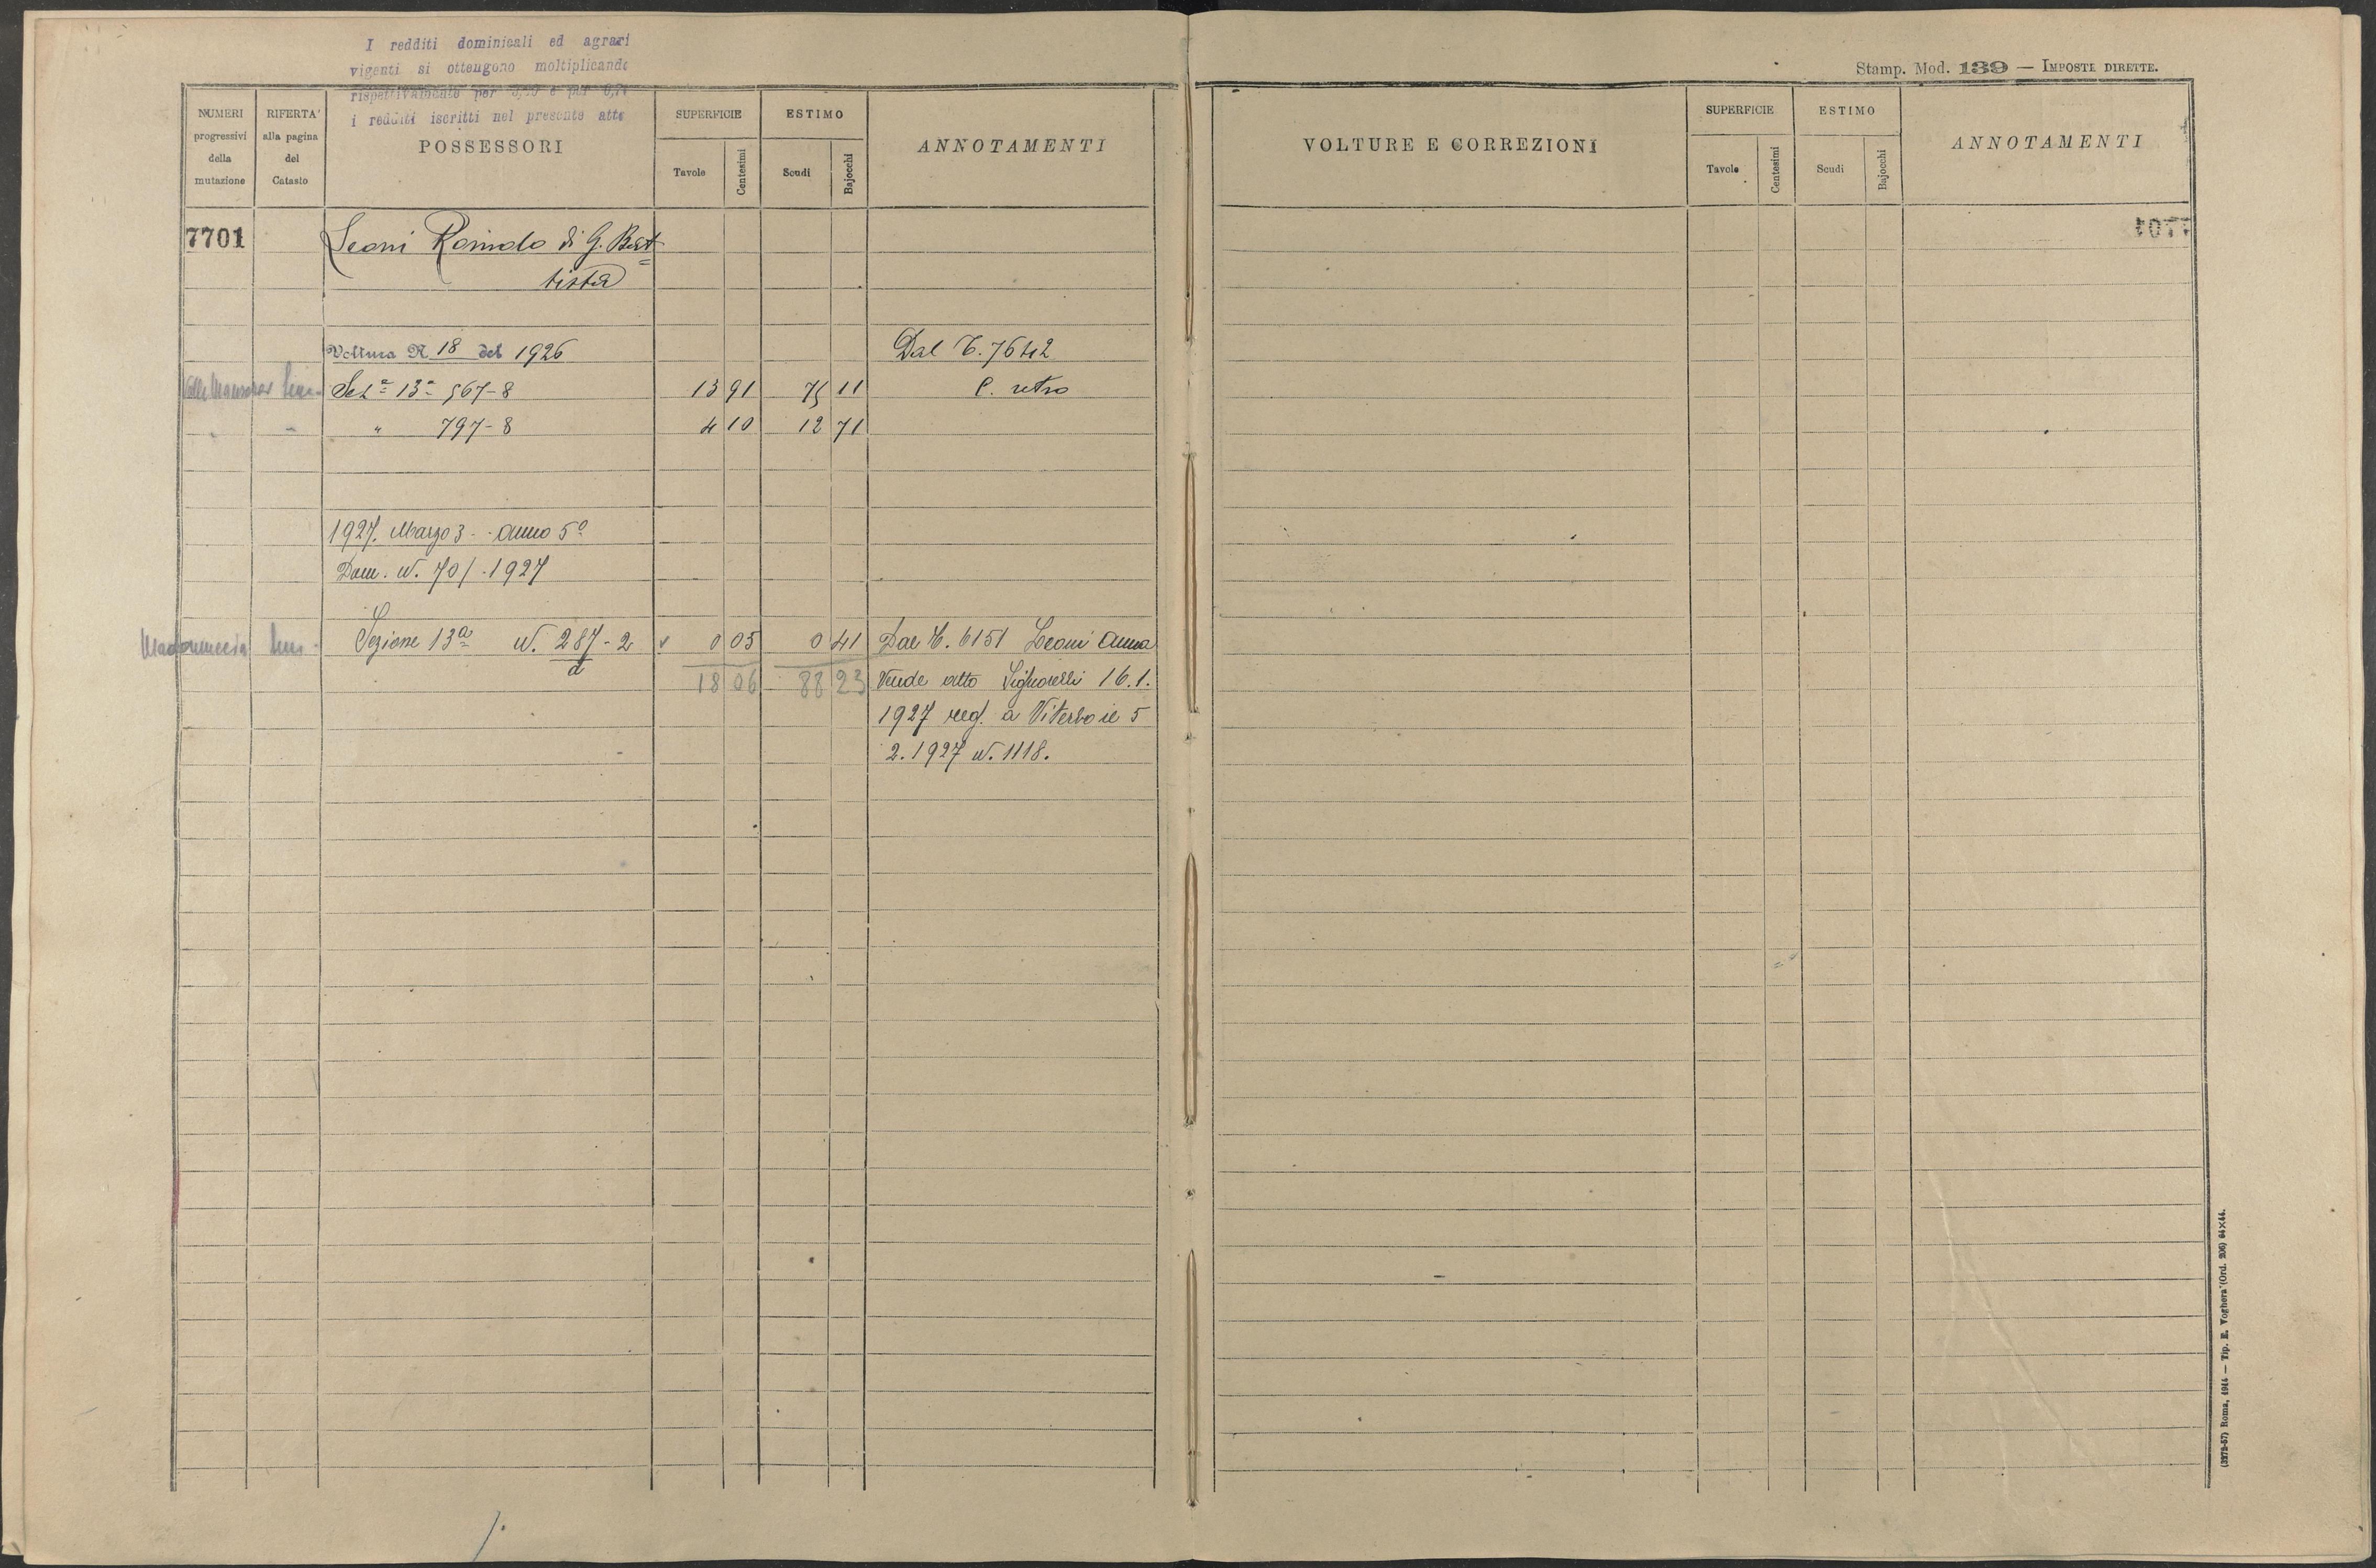 I redditi dominicali ed agrari
vigenti si ottengono moltiplicando
rispettivamente per e per
i redditi iscritti nel presente atto
Stamp. Mod. 139 — IMPOSTE DIRETTE.
NUMERI progressivi della mutazione
RIFERTA' alla pagina del Catasto
POSSESSORI
SUPERFICIE
Tavole Centesimi
ESTIMO
Scudi Bajocchi
ANNOTAMENTI
VOLTURE E CORREZIONI
SUPERFICIE
Tavole Centesimi
ESTIMO
Scudi Bajocchi
ANNOTAMENTI
7701 Leoni Romolo di G. Bat=
tista
Voltura N 18 del 1926 Dal C. 7642
Sez.ª 13ª 567-8 13 91 75 11 C. retro
" 797-8 4 10 12 71
1927. Marzo 3 - Anno 5º
Dom. N. 70/-1927
Sezione 13ª N. 287-2 0 05 0 41 Dal C. 6151 Leoni Anna
d
18 06 88 23 Vende atto Signorelli 16.1.
1927 reg. a Viterbo il 5
2.1927 N. 1118.
(3272-57) Roma, 1914 — Tip. E. Voghera (Ord. 206) 64×44.